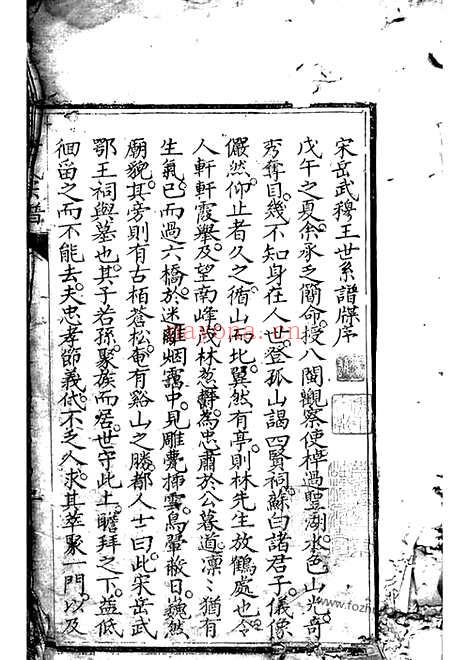 宋岳武穆王世系譜牒序
戊午之夏余承乏簡命授八閩觀察使棹過聖湖水色山光奇
秀奪目幾不知身在人世登孤山謁四賢祠蘇白諸君子儀像
儼然仰止者久之循山而北翼然有亭則林先生放鶴處也令
人軒軒霞舉及望南峰茂林葱鬱為忠肅于公墓道凜凜猶有
生氣已而過六橋於迷離烟靄中見雕甍插雲鳥翬蔽日巍然
廟貌其旁則有古栢蒼松奄有谿山之勝都人士曰此宋岳武
鄂王祠與墓也其子若孫聚族而居世守此土瞻拜之下益低
徊留之而不能去夫忠孝節義代不乏人求其萃聚一門以及
譜
nayona.cn